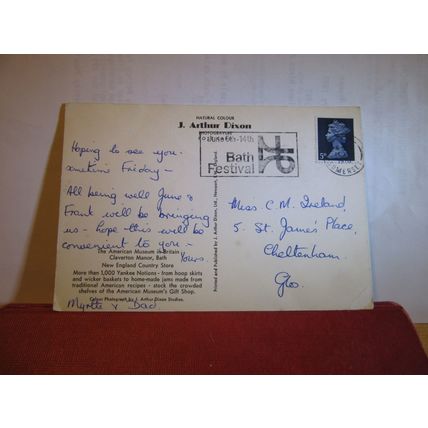 NATURAL COLOUR
J. Arthur Dixon
PHOTOGRAPH
POSTCARD
Hoping to see you -
sometime Friday -
All being well June &
Frank will be bringing
us - hope this will be
convenient to you -
Yours.
The American Museum in Britain
Claverton Manor, Bath
New England Country Store
More than 1,000 Yankee Notions - from hoop skirts
and wicker baskets to home-made jams made from
traditional American recipes - stock the crowded
shelves of the American Museum's Gift Shop.
Colour Photograph by J. Arthur Dixon Studios.
Myrtle & Dad
Printed and Published by J. Arthur Dixon Ltd., Newport,
-14th
Bath
Festival
5D
Miss C. M. Ireland,
5 St. James's Place,
Cheltenham.
Glos.